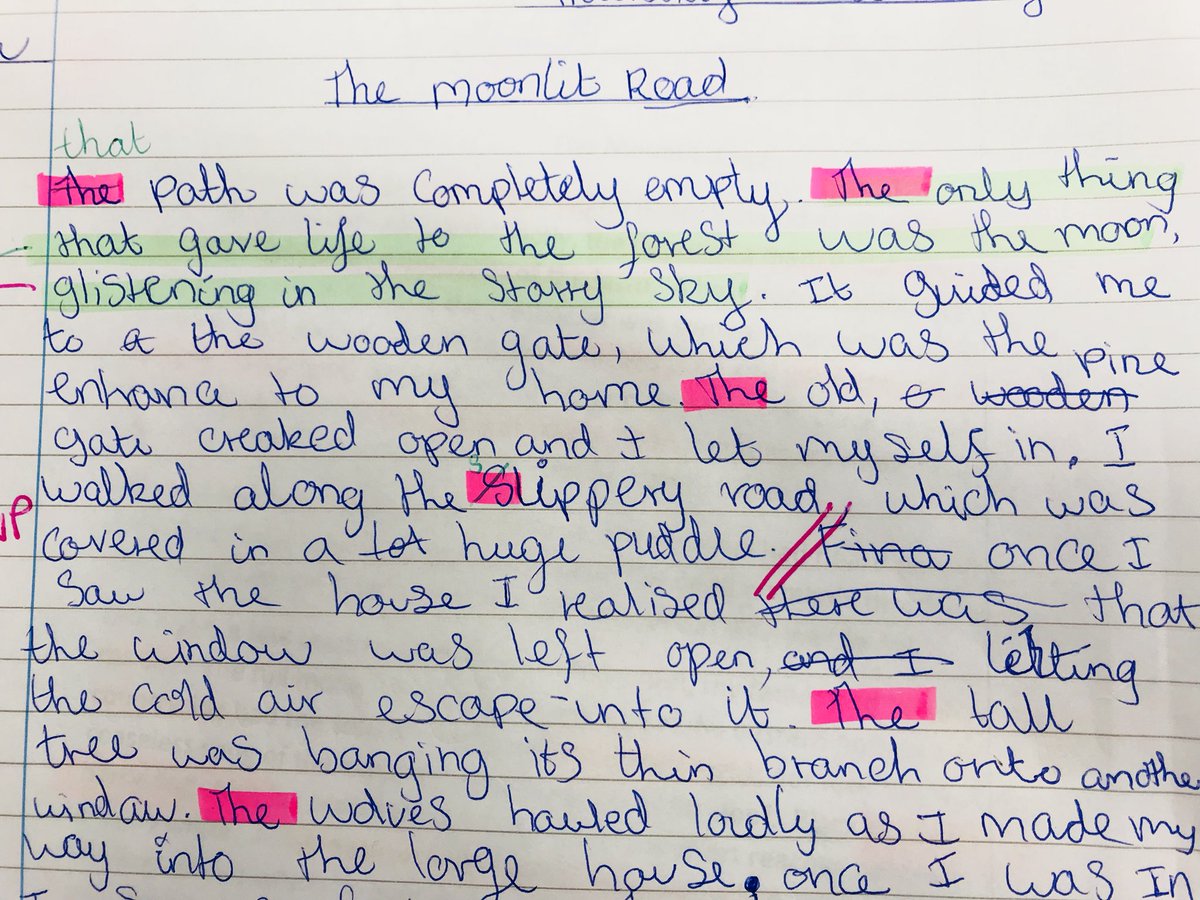 The moonlit Road.
that
The path was completely empty. The only thing
that gave life to the forest was the moon,
glistening in the starry sky. It guided me
to a the wooden gate, which was the pine
enhance to my home. The old, o wooden
gate creaked open and I let myself in. I
walked along the slippery road, which was
covered in a lot huge puddle. Fina once I
saw the house I realised there was that
the window was left open, and I letting
the cold air escape into it. The tall
tree was banging its thin branch onto anothe
window. The wolves howled loudly as I made my
way into the large house. once I was In